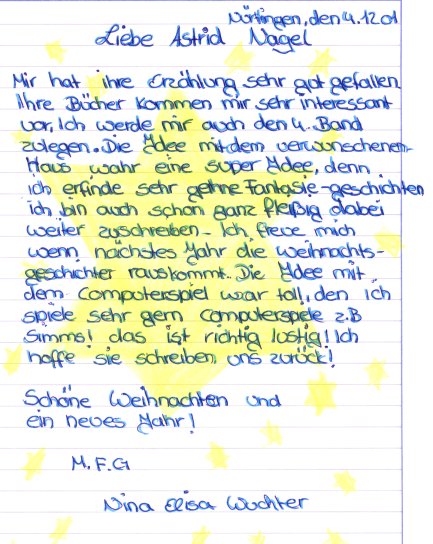 Nürtingen, den 4.12.01
Liebe Astrid Nagel
Mir hat ihre Erzählung sehr gut gefallen
Ihre Bücher kommen mir sehr interessant
vor. Ich werde mir auch den 4. Band
zulegen. Die Idee mit dem verwunschenen
Haus wahr eine super Idee, denn
ich erfinde sehr gehne Fantasie-geschichten
ich bin auch schon ganz fleißig dabei
weiter zuschreiben. Ich freue mich
wenn nächstes Jahr die Weihnachts-
geschichter rauskommt. Die Idee mit
dem Computerspiel war toll, den ich
spiele sehr gern Computerspele z.B
Simms! das ist richtig lustig! Ich
hoffe sie schreiben uns zurück!
Schöne Weihnachten und
ein neues Jahr!
M.F.G
Nina Elisa Wuchter